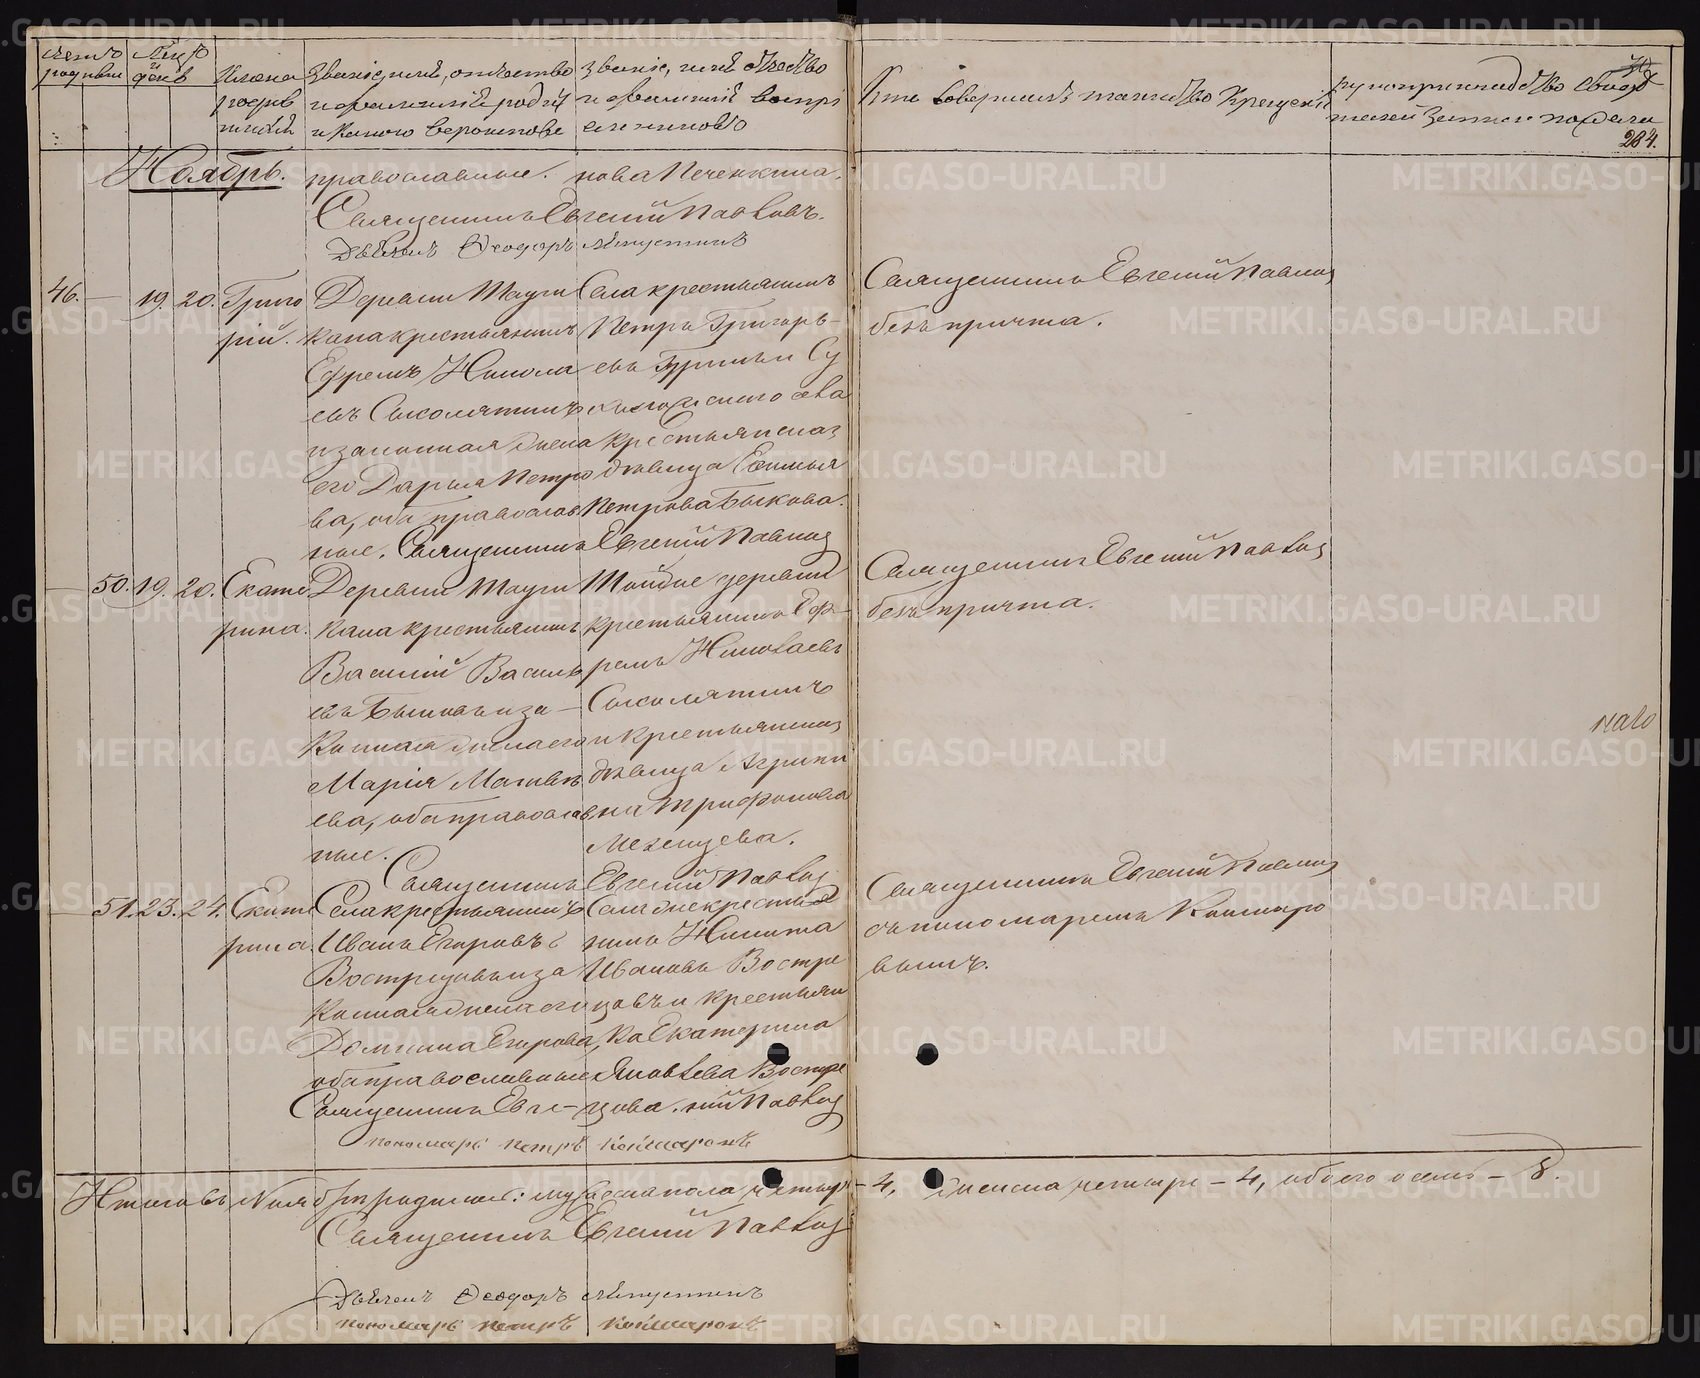 Счетъ родившихся
Мѣс. и день
Имена родившихся
Званіе, имя, отчество и фамилія родителей и какого вѣроисповѣ
Званіе, имя, отчество и фамилія воспріемниковъ
Кто совершалъ таинство крещенія
Рукоприкладство свидѣтелей записи по желанію
204.
Ноябрь.
православные.
нова Печенкина.
Священникъ Евгеній Павловъ.
Дьяконъ Ѳеодоръ
46. — 19. 20.
Григорій.
Деревни Тауш
кана крестьянинъ
Ефремъ Никола
евъ Соколятинъ
и законная жена
его Дарья Петро
ва, оба православ
ные.
Села крестьянинъ
Петръ Григорь-
евъ
крестьянская
дѣвица
Петрова Быкова.
Священникъ Евгеній Павлов
Священникъ Евгеній Павлов
безъ причта.
— 50. 19. 20.
Екатерина.
Деревни Тауш
кана крестьянинъ
Василій Василь
евъ Быковъ и за-
конная жена его
Марія Матвѣ
ева, оба православ
ные.
Тойже деревни
крестьянинъ Еф-
ремъ Николаевъ
Соколятинъ
и крестьянская
дѣвица Агрипи
на Трифонова
Мезенцева.
Священникъ Евгеній Павлов
Священникъ Евгеній Павлов
безъ причта.
— 51. 23. 24.
Екатерина.
Села крестьянинъ
Иванъ Егоровъ
Вострецовъ и за
конная жена его
Домника Егорова,
оба православные
Села же крестья
нинъ Никита
Ивановъ Востре
цовъ и крестьян
ка Екатерина
Яковлева Востре
цова.
Священникъ Евге-ній Павлов
пономарь Петръ
Священникъ Евгеній Павлов
съ пономаремъ
вымъ.
Итого въ Ноябрѣ родилось: мужеска пола четыре – 4, женска четыре – 4, обоего осемь – 8.
Священникъ Евгеній Павлов
Дьяконъ Ѳеодоръ
пономарь Петръ
METRIKI.GASO-URAL.RU